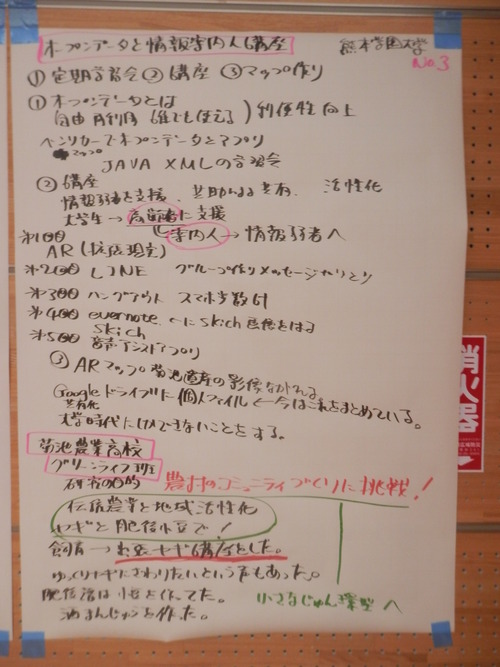 オープンデータと情報案内人講座
熊本学園大学
No.3
①定期学習会 ②講座 ③マップ作り
①オープンデータとは
自由 再利用 誰でも使える
利便性向上
でオープンデータとアプリ
マップ
JAVA XMLの学習会
②講座
情報弱者を支援、共助による共有、活性化
大学生→高齢者に支援
案内人→情報弱者へ
第100
AR(拡張現実)
第200 LINE グループ作りメッセージやりとり
第300 ハングアウト スマホ
第400 evernote ←にSkich画像をはる
Skich
第500 音声アシストアプリ
③ARマップ 菊池遺産の影像ながれる
Googleドライブルに個人ファイル ←今はこれをまとめている。
共有化
大学時代にしかできないことをする。
菊池農業高校
グリーンライフ班
研究の目的
農村のコミュニティづくりに挑戦!
伝統農業と地域活性化
ヤギと肥後小豆で!
飼育→出張ヤギ講座とした。
ゆっくりヤギにさわりたいという声もあった。
小さなじゅん環型へ
は小豆を作ってた。
酒まんじゅうを作った。
消火器